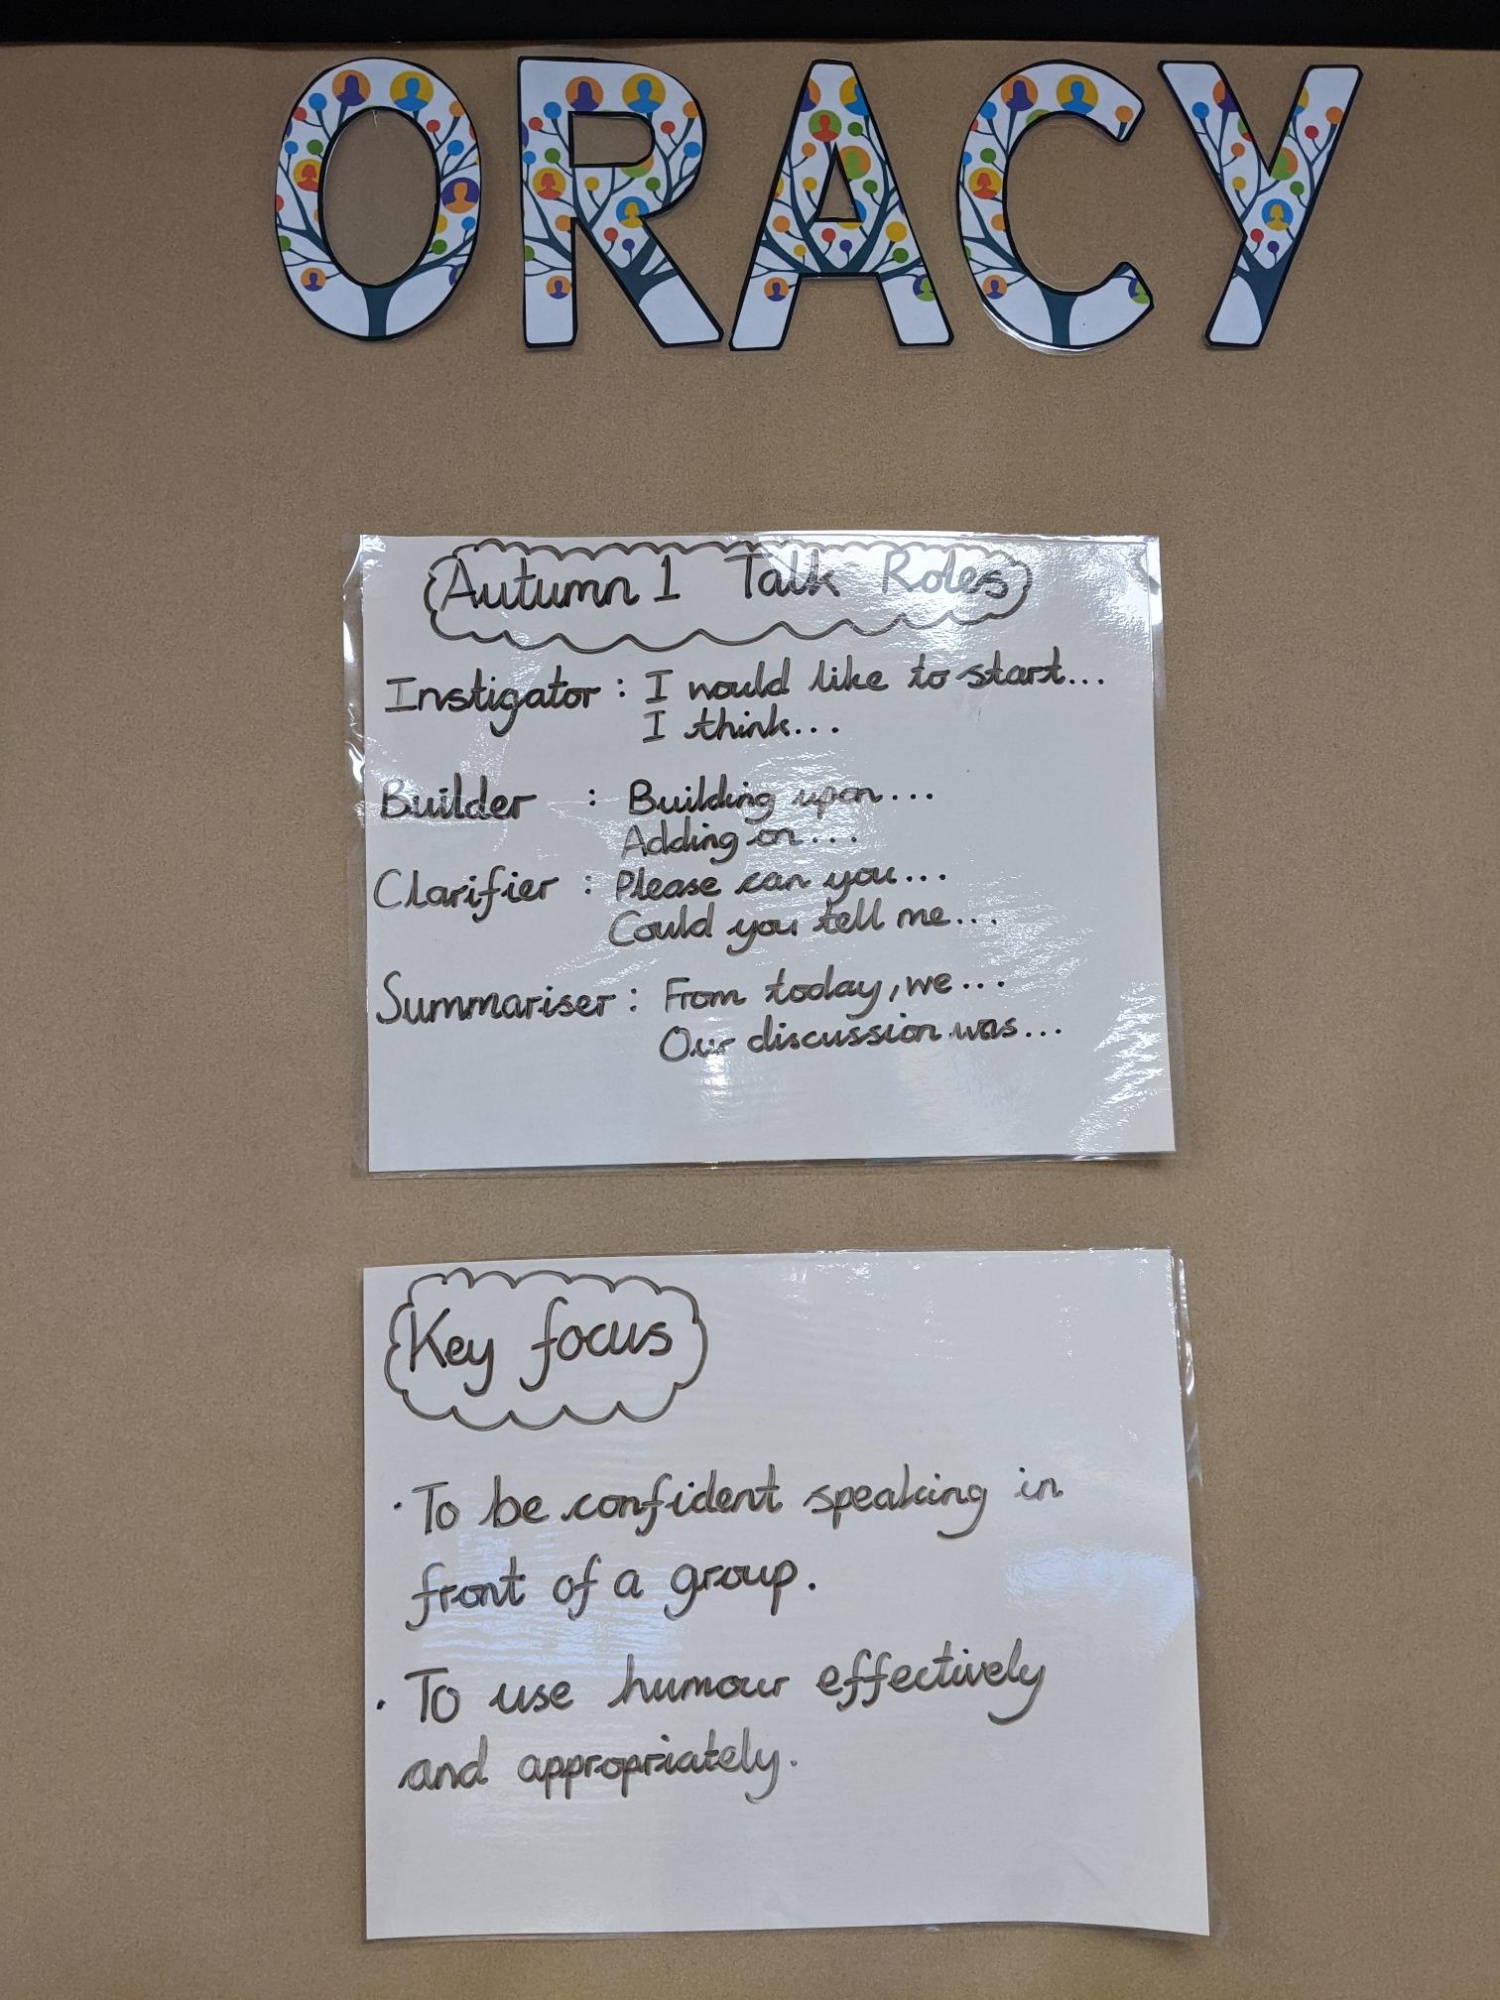 ORACY
Autumn 1 Talk Roles
Instigator : I would like to start...
I think...
Builder : Building upon...
Adding on...
Clarifier : Please can you...
Could you tell me...
Summariser : From today, we...
Our discussion was...
Key focus
· To be confident speaking in
front of a group.
· To use humour effectively
and appropriately.